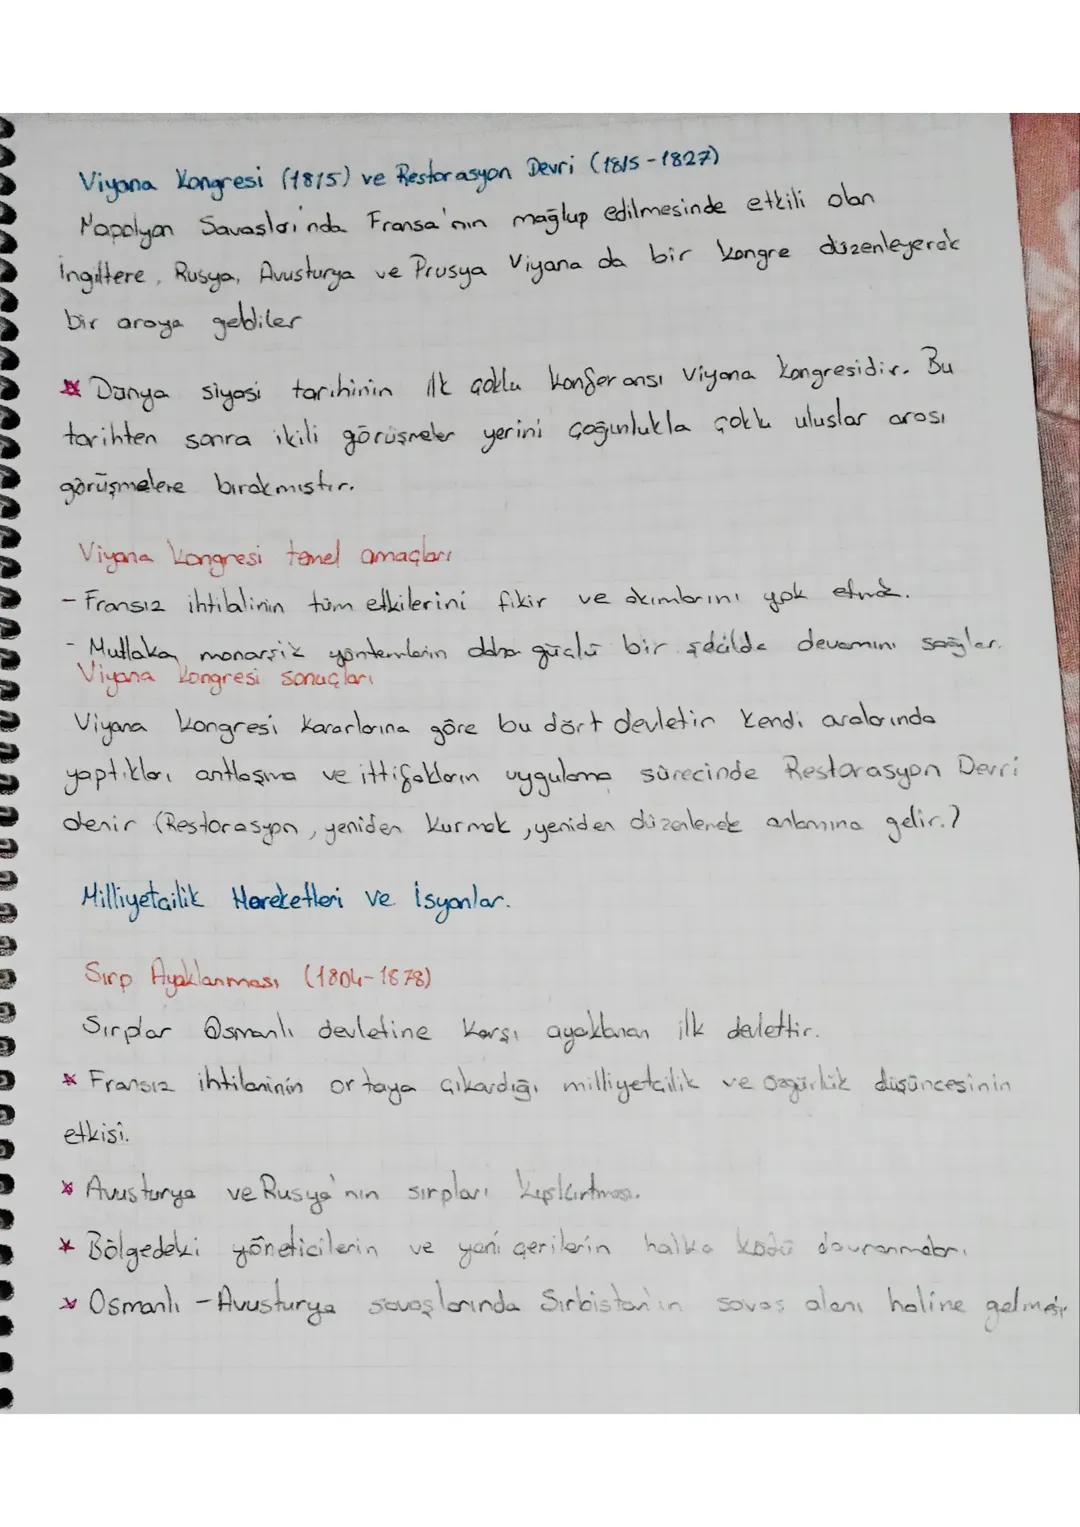 Viyana Kongresi (1815) ve Restorasyon Devri (1815-1827)
Napolyon Savasları'nda Fransa'nın mağlup edilmesinde etkili olan
İngiltere, Rusya, Avusturya ve Prusya Viyana da bir kongre düzenleyerek
bir araya geldiler
* Dünya siyasi tarihinin ilk çoklu konferansı Viyana Kongresidir. Bu
tarihten sonra ikili görüşmeler yerini çoğunlukla çoklu uluslar arası
görüşmelere bırakmıştır.
Viyana Kongresi temel amaçları
- Fransız ihtilalinin tüm etkilerini fikir ve akımlarını yok etmek.
- Mutlaka monarşik yöntemlerin daha güçlü bir şekilde devamını sağlar.
Viyana Kongresi sonuçları
Viyana Kongresi Kararlarına göre bu dört devletin kendi aralarında
yaptıkları antlaşma ve ittifakların uygulama sürecinde Restorasyon Devri
denir (Restorasyon, yeniden kurmak, yeniden düzenlemek anlamına gelir.)
Milliyetçilik Hareketleri ve İsyanlar.
Sırp Ayaklanması (1804-1878)
Sırplar Osmanlı devletine karşı ayaklanan ilk devlettir.
* Fransız ihtilaninin ortaya çıkardığı milliyetçilik ve özgürlük düşüncesinin
etkisi.
* Avusturya ve Rusya'nın sırpları kışkırtması.
* Bölgedeki yöneticilerin ve yeni çerilerin halka kötü davranmaları
* Osmanlı - Avusturya savaşlarında Sırbistan'ın savaş alanı haline gelmesi